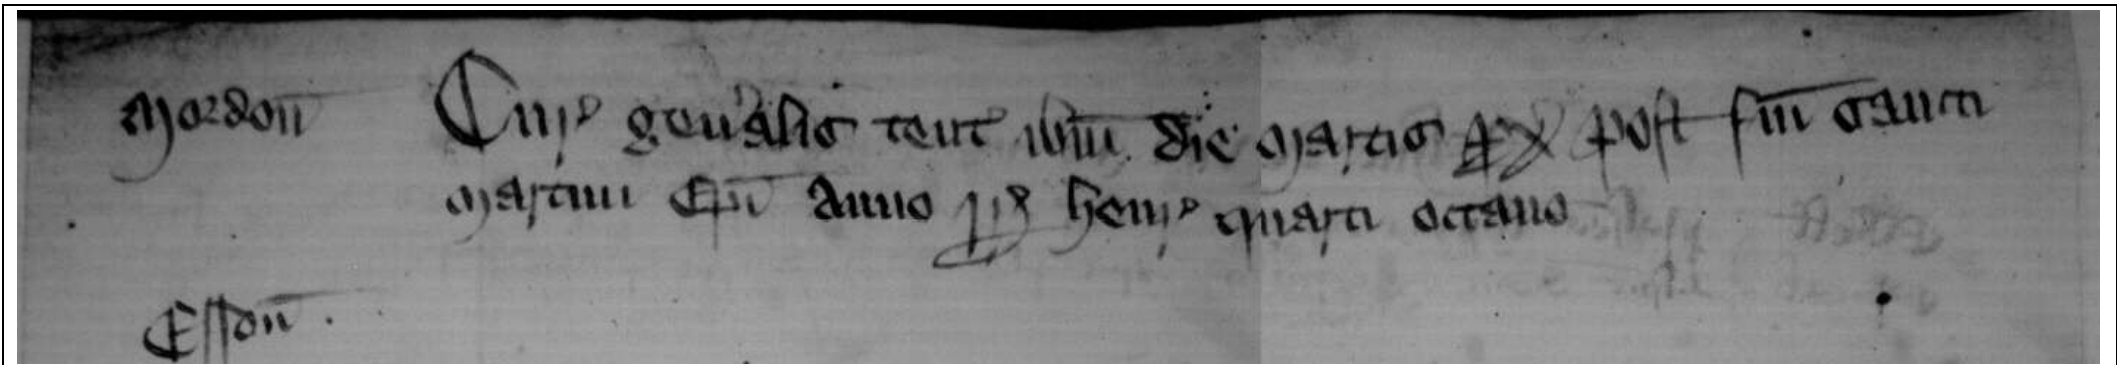 Mordon̄ Cur' gen'alis tent' ib̄m die martis p'x post f'm sancti
martini Ep̄i Anno r r Henr' quarti octauo
Esson̄.